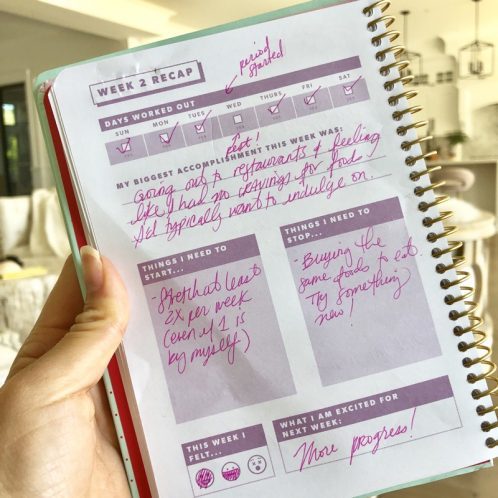 period
started
WEEK 2 RECAP
DAYS WORKED OUT
SUN MON TUES WED THURS FRI SAT
YES YES YES YES YES YES
rest!
MY BIGGEST ACCOMPLISHMENT THIS WEEK WAS:
Going out to restaurants & feeling
like I had no cravings for food
I'd typically want to indulge on.
THINGS I NEED TO
START...
- Stretch at least
2x per week
(even if 1 is
by myself)
THINGS I NEED TO
STOP...
- Buying the
same foods to eat.
Try something
new!
THIS WEEK I
FELT...
WHAT I AM EXCITED FOR
NEXT WEEK:
More progress!